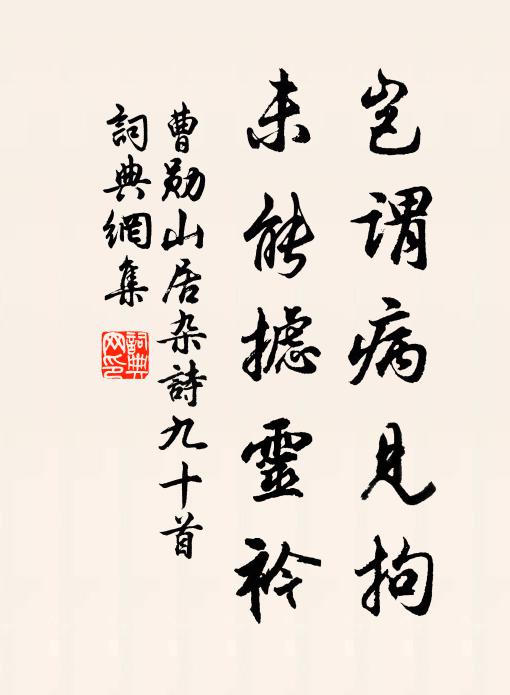 岂谓病见拘
未能摅靈衿
曹勋山居杂詩九十首
詞典網集
詞典網印